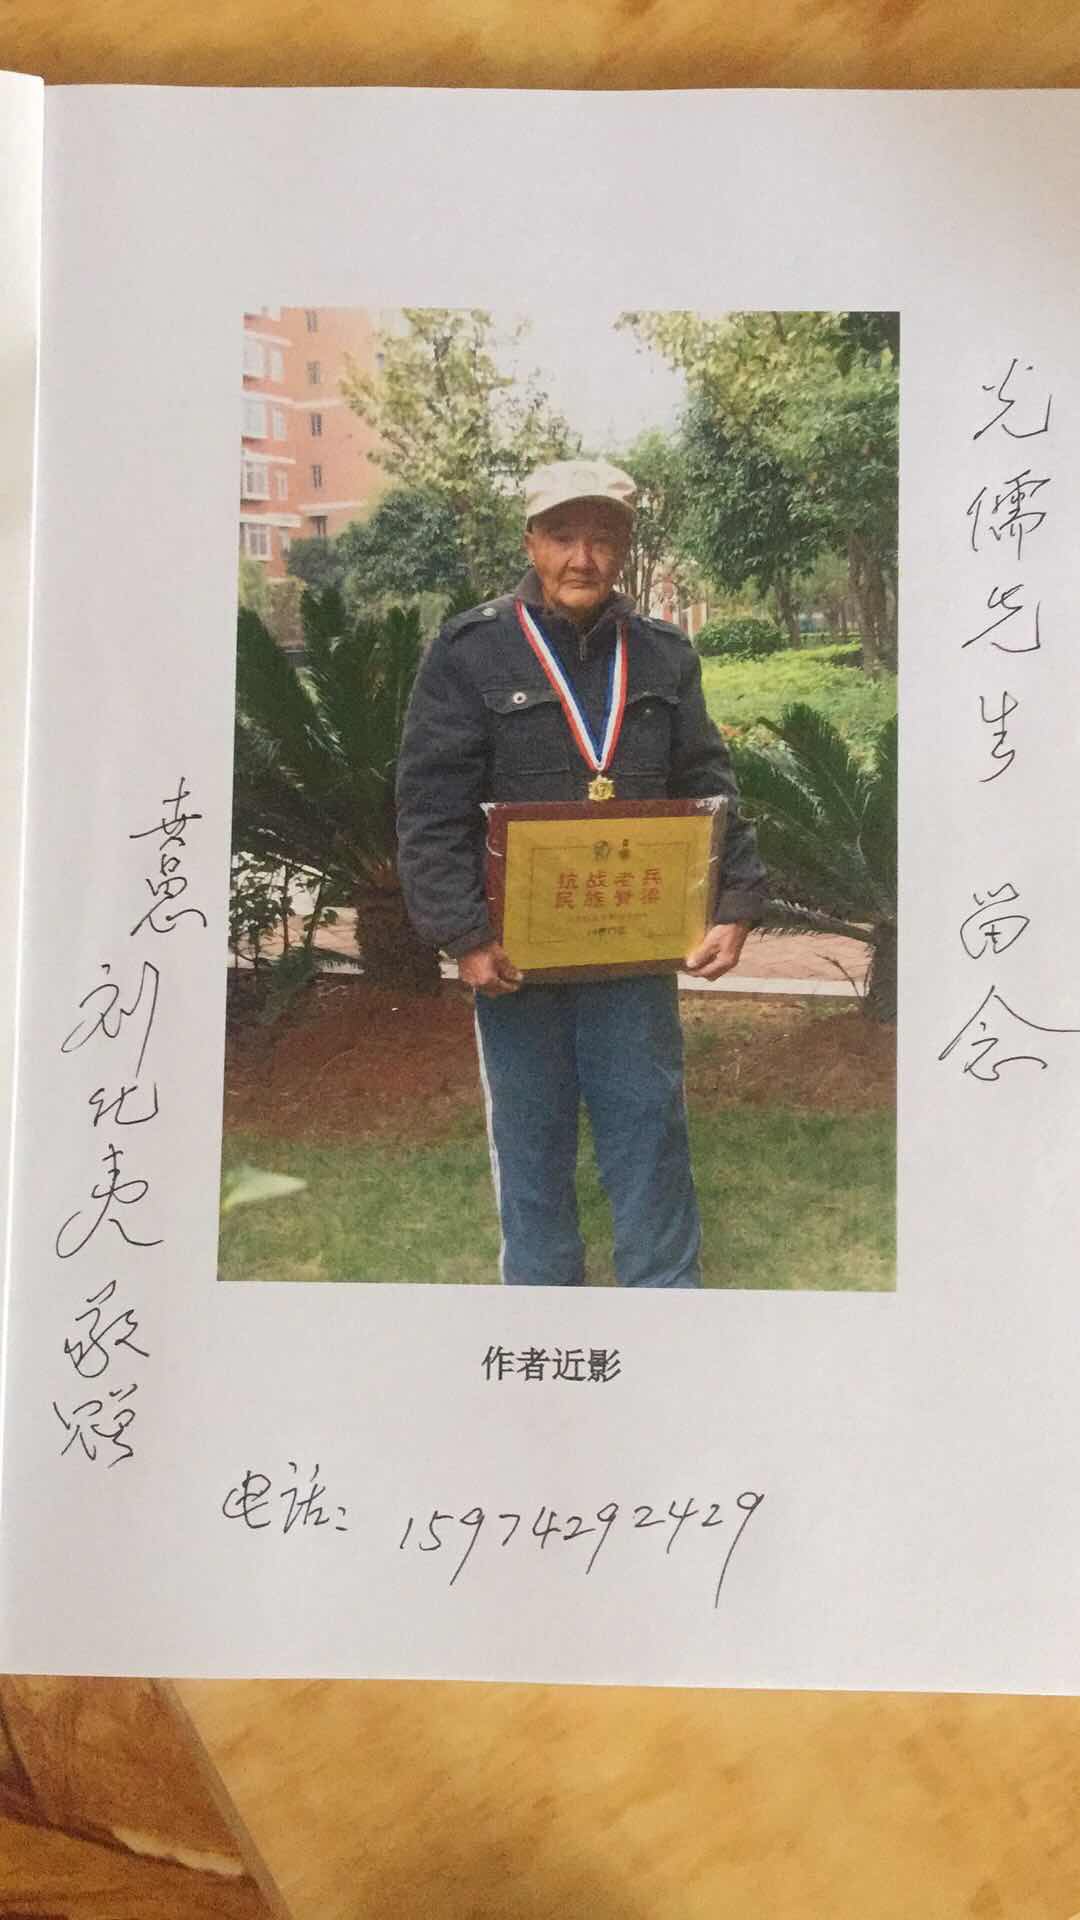 光儒先生 留念
抗战老兵
民族脊梁
愚
刘化夷敬赠
作者近影
电话: 15974292429